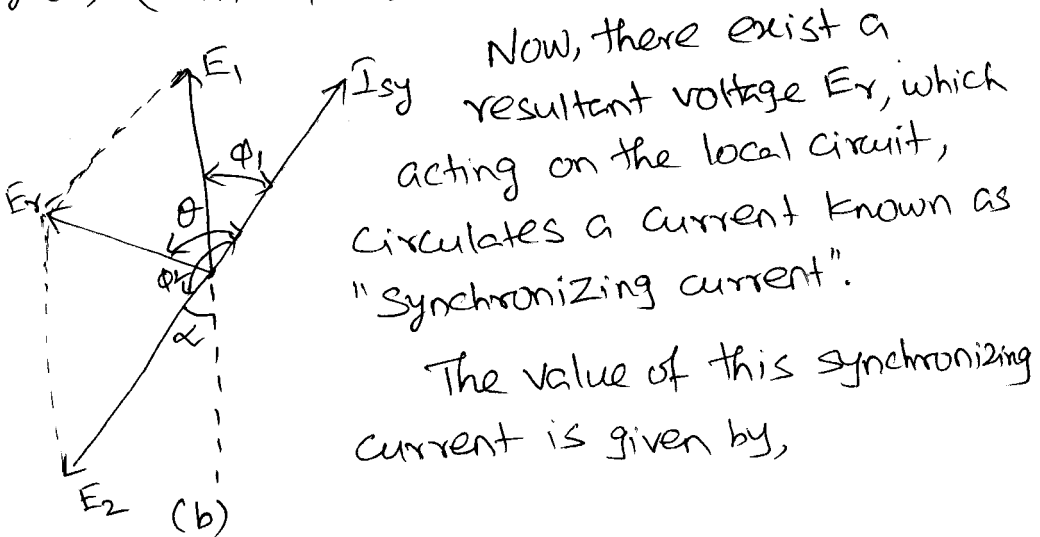 E1
Isy
Now, there exist a
resultant voltage Er, which
acting on the local circuit,
circulates a current known as
"Synchronizing current".
The value of this synchronizing
current is given by,
Φ1
Er
θ
Φ2
α
E2
(b)